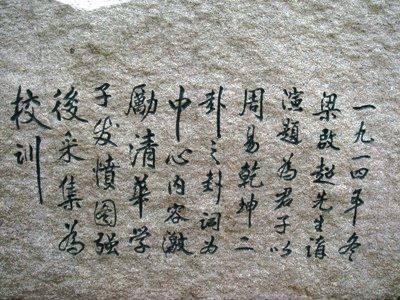 一九一四年冬
梁啟超先生清
演題為君子以
周易乾坤二
卦之卦詞为
中心内容激
勵清華学
子发憤图强
後采集為
校训